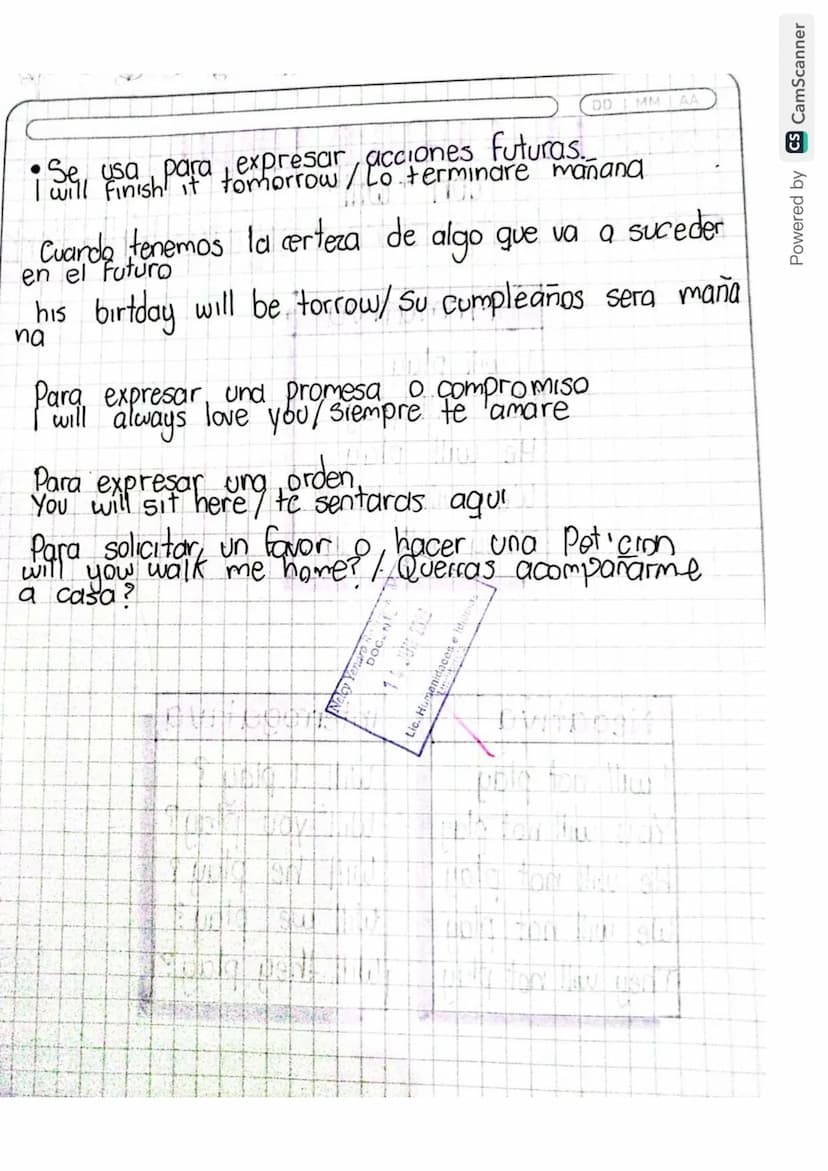 DD MM AA
• Se usa para expresar acciones futuras.
I will finish it tomorrow / Lo terminare mañana
Cuando tenemos la certeza de algo que va a suceder
en el futuro
his birtday will be torrow / Su cumpleaños sera maña
na
Para expresar una promesa o compromiso
I will always love you / Siempre te amare
Para expresar una orden
You will sit here / te sentaras aqui
Para solicitar un favor o hacer una Peticion
will yow walk me home? / Querras acompañarme
a casa?
DOC.
Lic. Humanidades e Idiomas
Powered by CS CamScanner